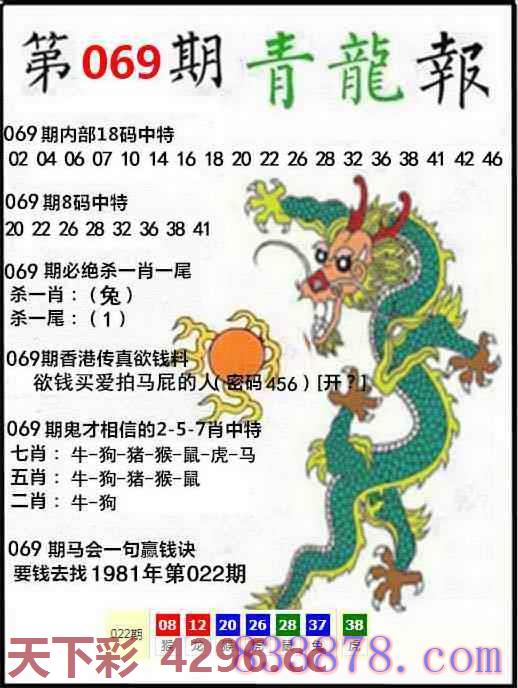 第069期青龍報
069期内部18码中特
02 04 06 07 10 14 16 18 20 22 26 28 32 36 38 41 42 46
069期8码中特
20 22 26 28 32 36 38 41
069期必绝杀一肖一尾
杀一肖：（兔）
杀一尾：（1）
069期香港传真欲钱料
欲钱买爱拍马屁的人(密码456)[开？]
069期鬼才相信的2-5-7肖中特
七肖：牛-狗-猪-猴-鼠-虎-马
五肖：牛-狗-猪-猴-鼠
二肖：牛-狗
069期马会一句赢钱诀
要钱去找1981年第022期
022期 08 12 20 26 28 37 38
猴 龙 猴 虎 鼠 兔 虎
天下彩 4296.cc
838878.com